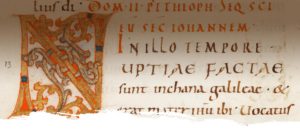 DOM II P THEOPH SEQ SCI
EU SEC IOHANNEM
IN ILLO TEMPORE
NUPTIAE FACTAE
sunt in chana galileae · &
erat mater ihu ibi · Vocatus